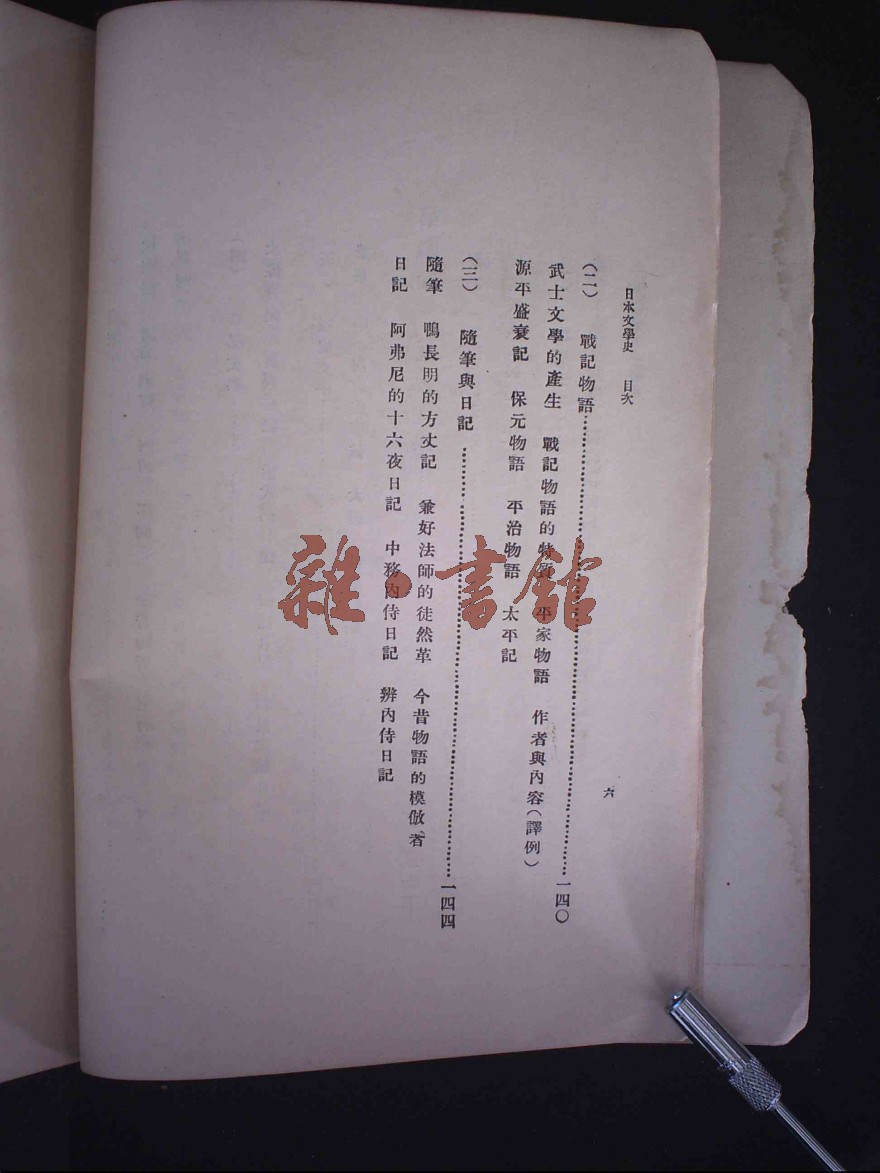 日本文學史 目次
六
(二) 戰記物語……一四〇
武士文學的產生 戰記物語的特質 平家物語 作者與內容(譯例)
源平盛衰記 保元物語 平治物語 太平記
(三) 隨筆與日記……一四四
隨筆 鴨長明的方丈記 兼好法師的徒然革 今昔物語的模倣者
日記 阿弗尼的十六夜日記 中務內侍日記 辨內侍日記
雜·書館